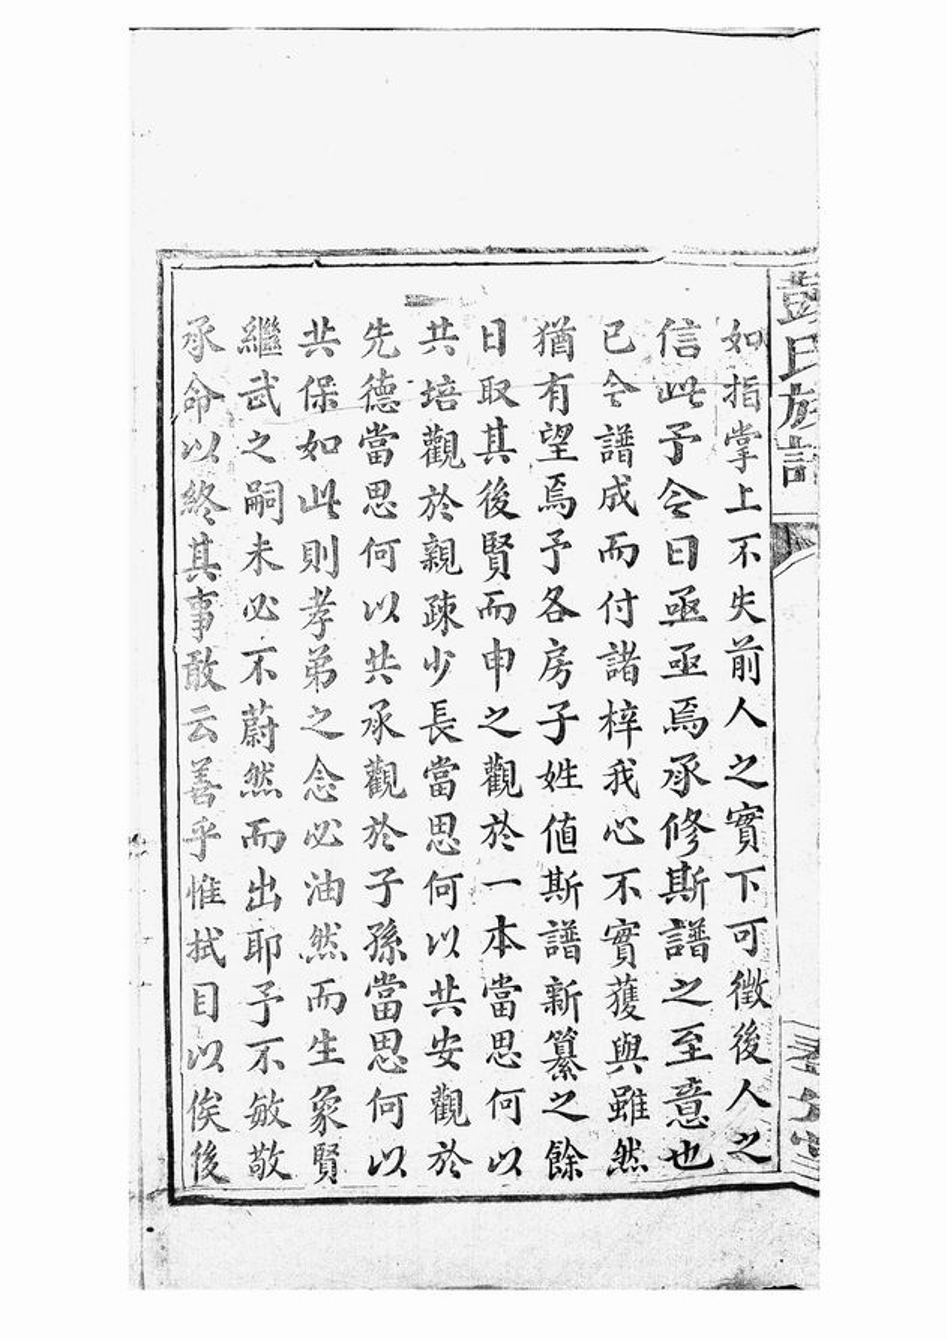 彭氏族譜
如指掌上不失前人之實下可徵後人之
信此予今日亟亟焉承修斯譜之至意也
已今譜成而付諸梓我心不實獲與雖然
猶有望焉予各房子姓值斯譜新纂之餘
日取其後賢而申之觀於一本當思何以
共培觀於親疎少長當思何以共安觀於
先德當思何以共承觀於子孫當思何以
共保如此則孝弟之念必油然而生象賢
繼武之嗣未必不蔚然而出耶予不敏敬
承命以終其事敢云善乎惟拭目以俟後